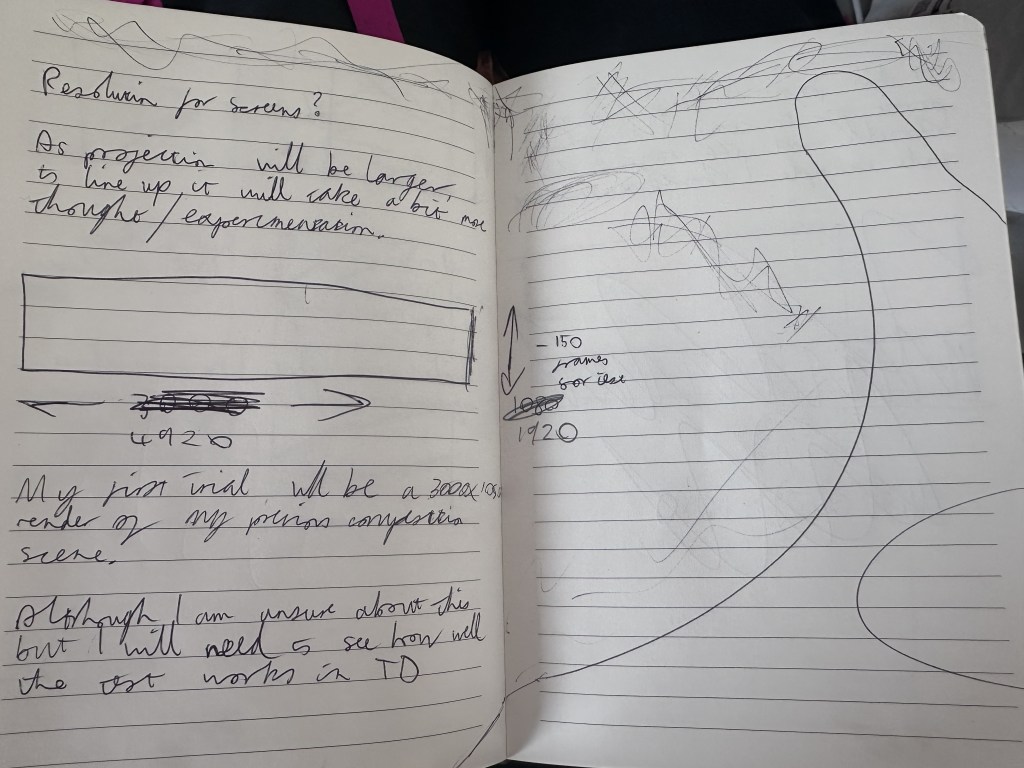 Resolution for screens?
As projection will be larger,
to line up it will take a bit more
thought / experimentation.
4920
My first trial will be a 3000x
render of my previous composition
scene.
Although I am unsure about this
but I will need to see how well
the test works in TD
- 150
frames
for test
1080
1920